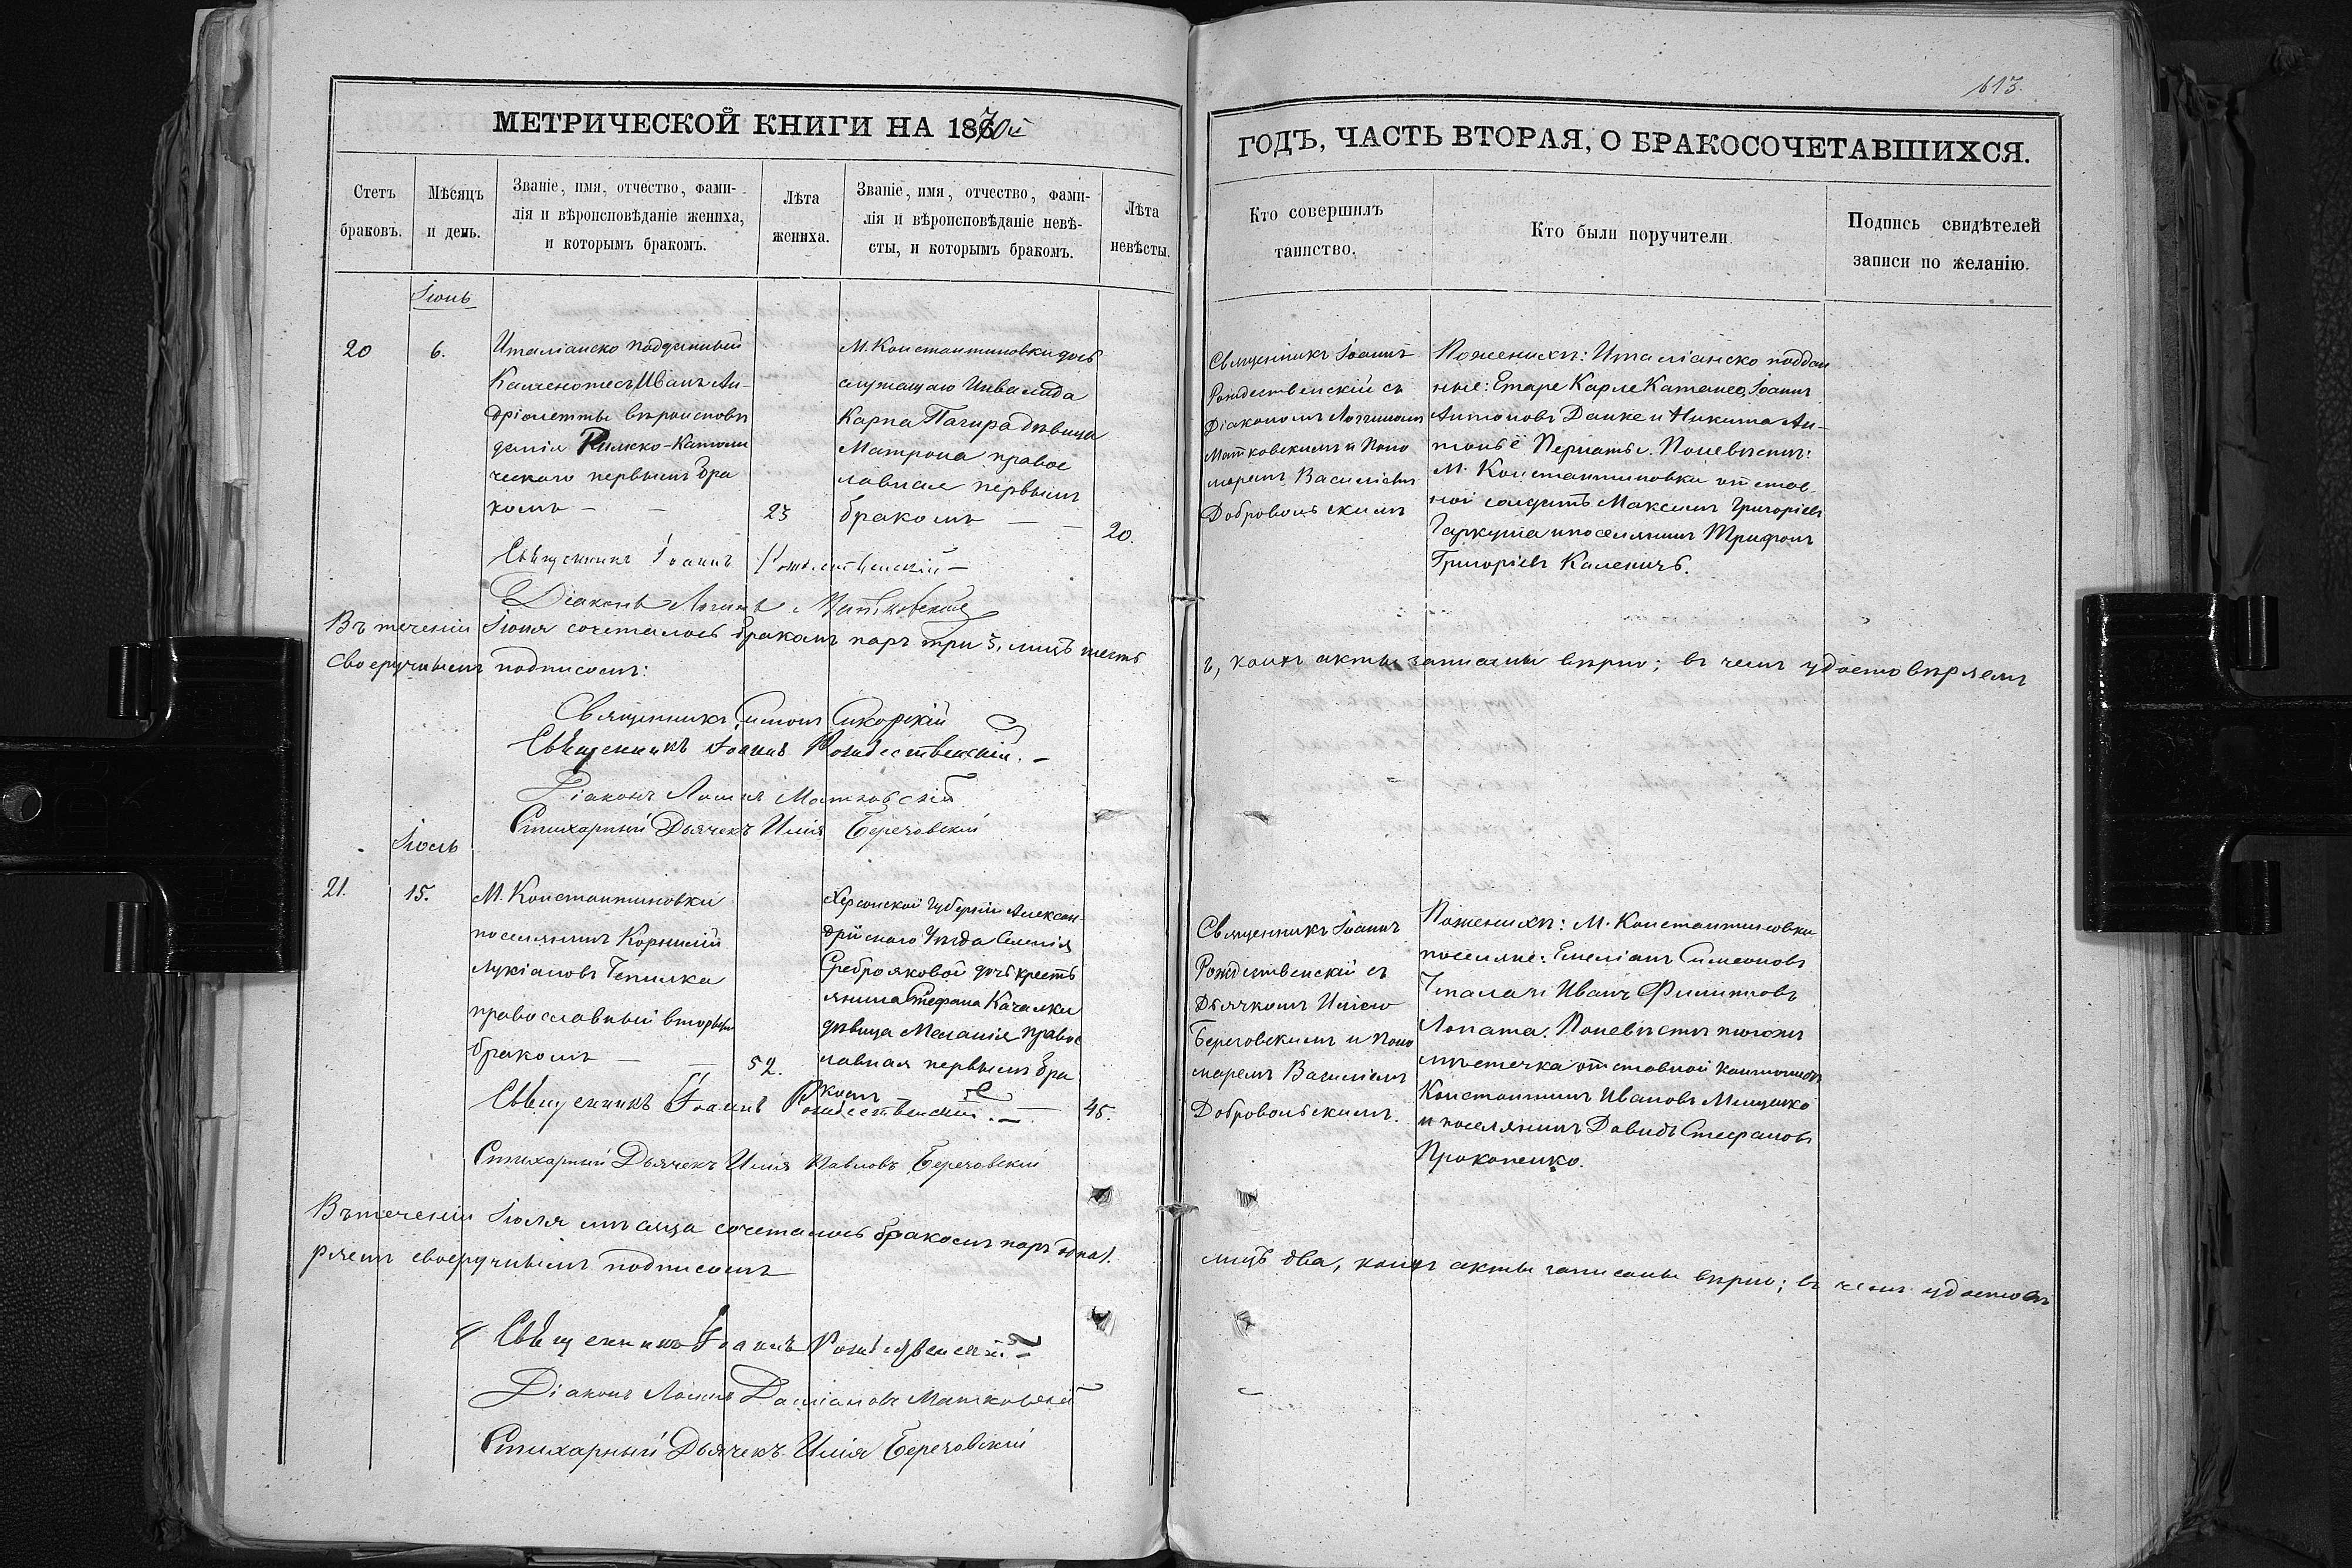 613.
МЕТРИЧЕСКОЙ КНИГИ НА 1870й
ГОДЪ, ЧАСТЬ ВТОРАЯ, О БРАКОСОЧЕТАВШИХСЯ.
Счетъ
браковъ.
Мѣсяцъ
и день.
Званіе, имя, отчество, фами-
лія и вѣроисповѣданіе жениха,
и которымъ бракомъ.
Лѣта
жениха.
Званіе, имя, отчество, фами-
лія и вѣроисповѣданіе невѣ-
сты, и которымъ бракомъ.
Лѣта
невѣсты.
Кто совершилъ
таинство.
Кто были поручители.
Подпись свидѣтелей
записи по желанію.
Іюнь
20
6.
Италіанско подданный
Каменотесъ Иванъ Ан-
дріолетты вѣроисповѣ
данія Римско-Католи
ческаго первымъ бра
комъ
23
М. Константиновки дочь
служащаго Инвалида
Карпа Пагира дѣвица
Матрона правос
лавная первымъ
бракомъ
20.
Священникъ Іоаннъ
Рождественскій съ
Діакономъ Логгиномъ
Матковскимъ и Поно
маремъ Василіемъ
Добровольскимъ
Поженихѣ: Италіанско поддан
ные: Етаре Карле Катанео, Іоаннъ
Антоновъ Данке и Никита Ан-
Поневѣстѣ:
М. Константиновки отстав-
ной солдатъ Максимъ Григоріевъ
Гаркуша и поселянинъ Трифонъ
Григоріевъ Каленичъ.
Священникъ Іоаннъ Рождественскій
Діаконъ Логинъ Матковскій
Въ теченіи Іюня сочеталось бракомъ паръ три 3, лицъ шесть
6, коихъ акты записаны вѣрно; въ чемъ удостовѣряемъ
своеручнымъ подписомъ:
Священникъ Симонъ Сикорскій
Священникъ Іоаннъ Рождественскій.
Діаконъ Логинъ Матковскій
Стихарный Дьячекъ Илія Березовскій
Іюль
21.
15.
М. Константиновки
поселянинъ Корнилій
Лукіановъ Чепилка
православный вторымъ
бракомъ
52.
Херсонской Губерніи Алексан-
дрійскаго Уѣзда Селенія
Среброяковой дочь кресть
янина Стефана Качалки
дѣвица Меланія правос
лавная первымъ бра
комъ
45.
Священникъ Іоаннъ
Рождественскій съ
Дьячкомъ Иліею
Березовскимъ и Поно
маремъ Василіемъ
Добровольскимъ.
Поженихѣ: М. Константиновки
поселяне: Емеліанъ Симеоновъ
Иванъ Филиповъ
Лопата. Поневѣстѣ тогожъ
мѣстечка отставной
Константинъ Ивановъ Мищенко
и поселянинъ Давидъ Стефановъ
Прокопенко.
Священникъ Іоаннъ Рождественскій.
Стихарный Дьячекъ Илія Павловъ Березовскій
Въ теченіи Іюля мѣсяца сочеталось бракомъ паръ одна 1.
лицъ два, коихъ акты записаны вѣрно; въ чемъ удостовѣ
ряемъ своеручнымъ подписомъ
Священникъ Іоаннъ Рождественскій
Діаконъ Логинъ Даміановъ Матковскій
Стихарный Дьячекъ Илія Березовскій